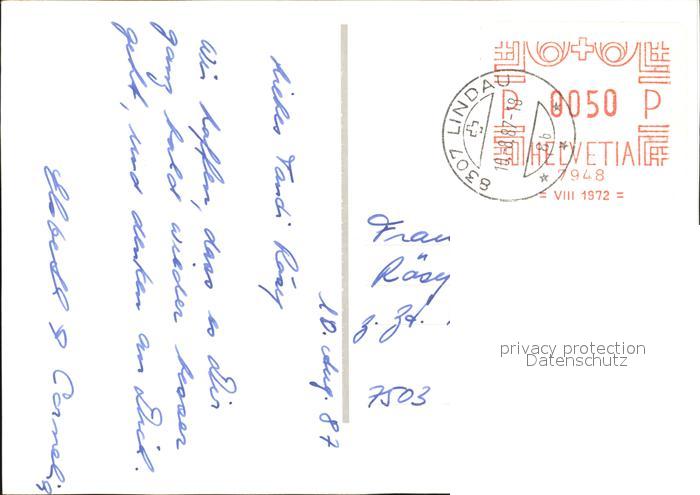 10. Aug. 87
Liebes Tanti Rösy
Wir hoffen, dass es Dir
ganz bald wieder besser
geht, und denken an Dich.
Elsbeth & Cornelia
P 0050 P
HELVETIA
7948
= VIII 1972 =
8307 LINDAU
10.8.87-18
Frau
Rösy
z. Zt.
7503
privacy protection
Datenschutz